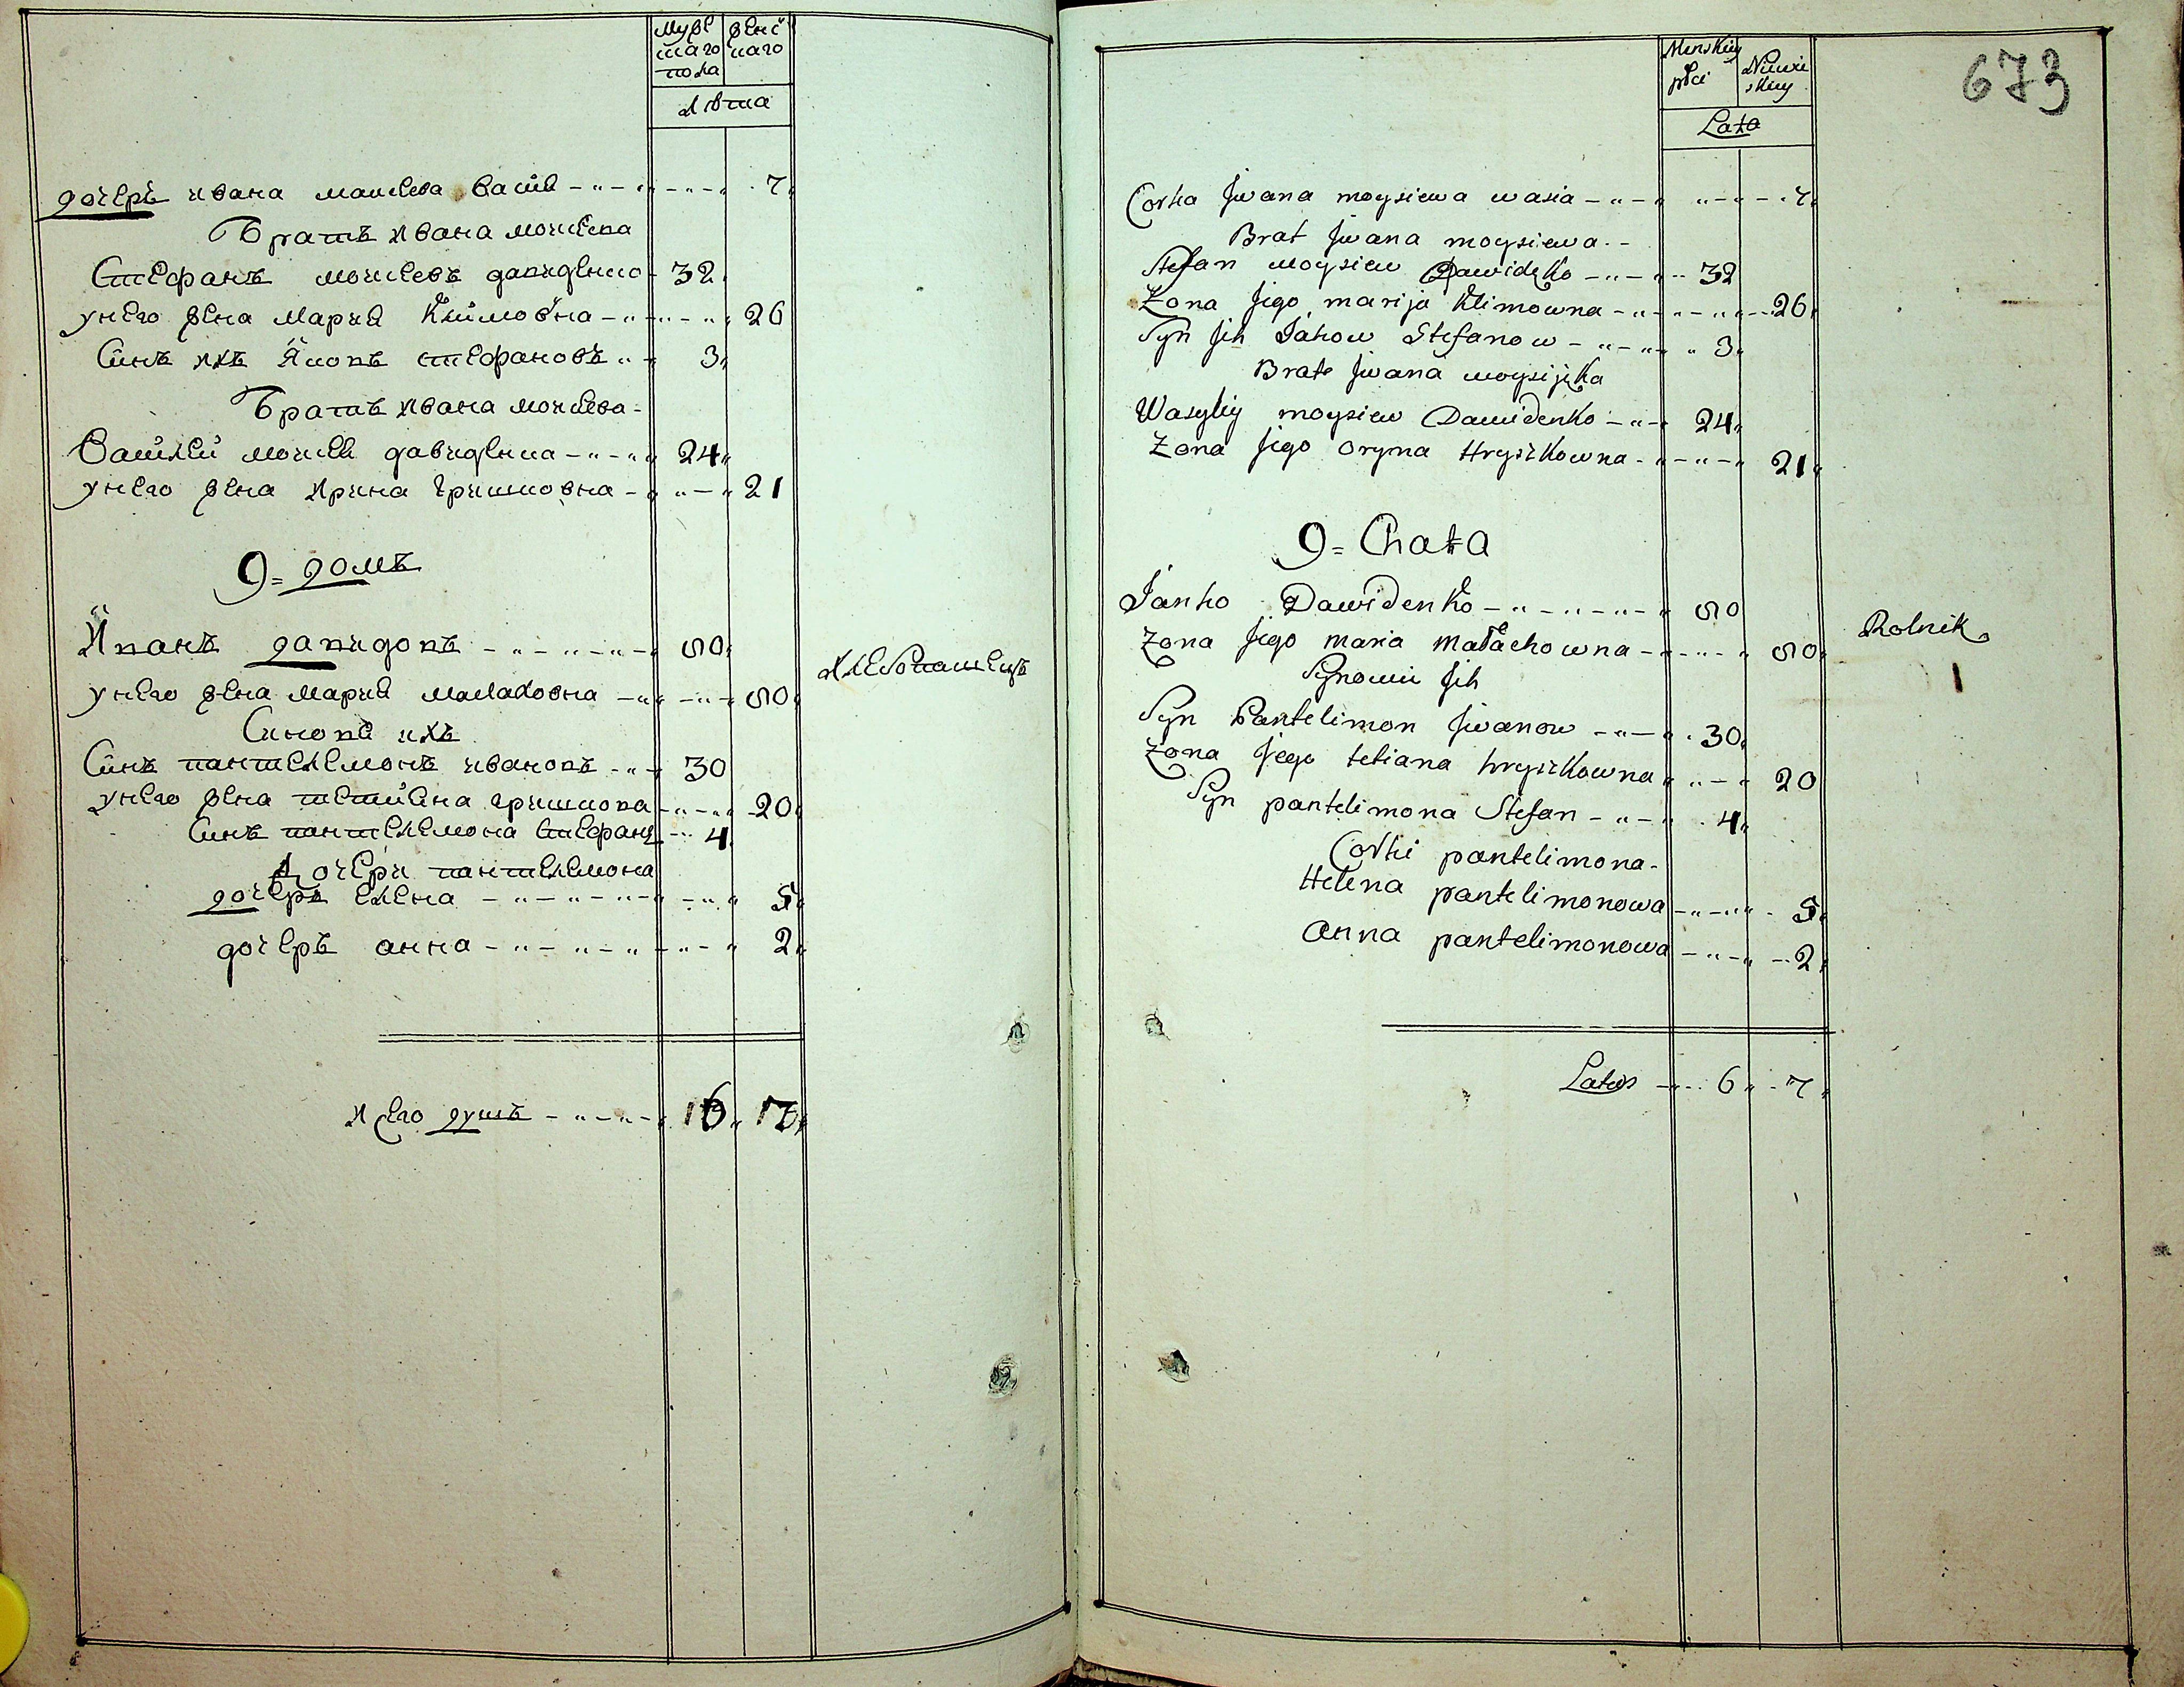 Мужескаго пола
женскаго
Лѣта
дочеръ ивана моисеева васиа 7
Братъ ивана моисеева
Стефанъ моисеевъ давиденко 32
унего жена Мария Климовна 26
Синъ ихъ Яковъ стефановъ 3
Братъ ивана моисеева
Василеи моисеев давиденка 24
унего жена Ирина гришковна 21
9 = домъ
Иванъ давидовъ 50
хлебопашецъ
унего жена Мария малаховна 50
Синови ихъ
Синъ пантелемонъ ивановъ 30
унего жена тетияна гришкова 20
Синъ пантелемона Стефанъ 4
Дочери пантелемона
дочеръ елена 5
дочеръ анна 2
Итего душъ 16 17
673
Menskiy płci
Niewiskiey
Lata
Corka Jwana moysiewa wasia 7
Brat Jwana moysiewa
Stefan moysiew Dawidęko 32
Zona Jigo marija Klimowna 26
Syn Jih Jakow Stefanow 3
Brate Jwana moysijeka
Wasyliy moysiew Dawidenko 24
Zona Jigo Oryna Hryszkowna 21
9 = Chata
Janko Dawidenko 50
Rolnik
1
Zona Jigo maria małachowna 50
Synowie Jih
Syn Pantelimon Jwanow 30
Zona Jego tetiana hryszkowna 20
Syn pantelimona Stefan 4
Corki pantelimona
Helena pantelimonowa 5
Anna pantelimonowa 2
Latus 6 7